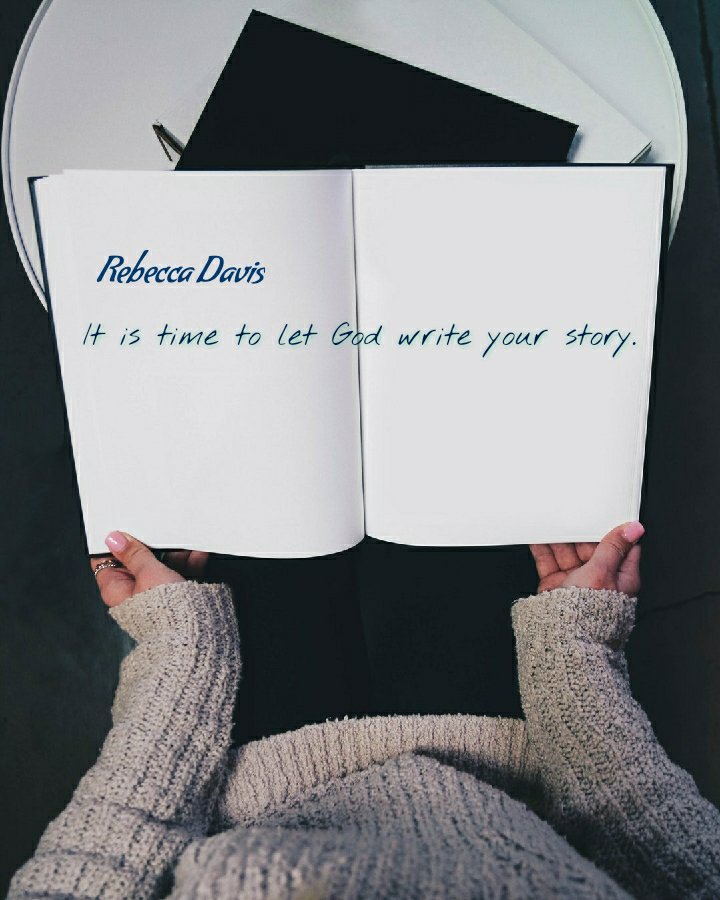 Rebecca Davis
It is time to let God write your story.